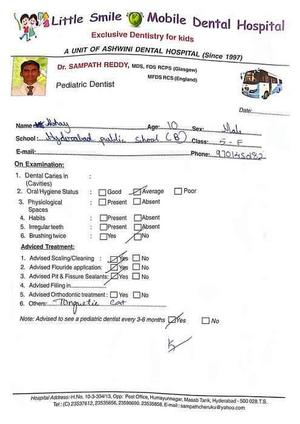 Little Smile Mobile Dental Hospital
Exclusive Dentistry for kids
A UNIT OF ASHWINI DENTAL HOSPITAL (Since 1997)
Dr. SAMPATH REDDY, MDS, FDS RCPS (Glasgow)
MFDS RCS (England)
Pediatric Dentist
Date:
Name Age: 10 Sex: Male
School: Hyderabad public school (B) Class: 5 - F
E-mail: Phone:
On Examination:
1. Dental Caries in :
(Cavities)
2. Oral Hygiene Status : Good Average Poor
3. Physiological : Present Absent
Spaces
4. Habits : Present Absent
5. Irregular teeth : Present Absent
6. Brushing twice : Yes No
Adviced Treatment:
1. Advised Scaling/Cleaning : Yes No
2. Advised Flouride application: Yes No
3. Advised Pit & Fissure Sealants: Yes No
4. Advised Filling in
5. Advised Orthodontic treatment : Yes No
6. Others:
Note: Advised to see a pediatric dentist every 3-6 months Yes No
Hospital Address: H.No. 10-3-304/13, Opp: Post Office, Humayunnagar, Masab Tank, Hyderabad - 500 028 T.S.
Tel: (C) 23537612, 23535656, 23590690, 23535858, E-mail: sampathcheruku@yahoo.com